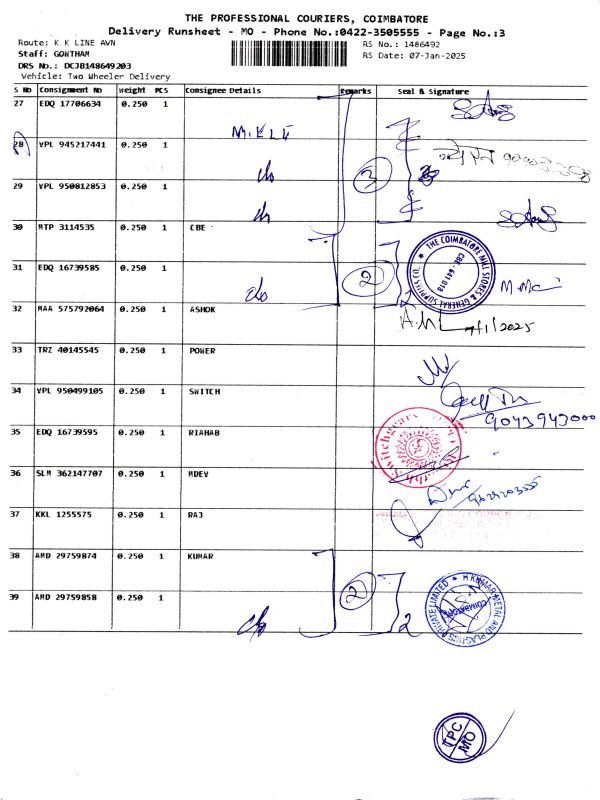 THE PROFESSIONAL COURIERS, COIMBATORE
Delivery Runsheet - MO - Phone No.:0422-3505555 - Page No.:3
Route: K K LINE AWN
RS No.: 1486492
Staff: GOWTHAM
RS Date: 07-Jan-2025
DRS No.: DCJB148649203
Vehicle: Two Wheeler Delivery
S No Consignment No Weight PCS Consignee Details Remarks Seal & Signature
27 EDQ 17706634 0.250 1
28 VPL 945217441 0.250 1
3
29 VPL 950812853 0.250 1
do
30 MTP 3114535 0.250 1 CBE
THE COIMBATORE MILL STORES & GENERAL SUPPLIES CO.
CBE - 641 018
31 EDQ 16739585 0.250 1 do 2
32 MAA 575792064 0.250 1 ASHOK
7/1/2025
33 TRZ 40145545 0.250 1 POWER
34 VPL 950499105 0.250 1 SWITCH
9043943000
35 EDQ 16739595 0.250 1 RIAHAB
36 SLM 362147707 0.250 1 MDEV
37 KKL 1255575 0.250 1 RAJ
38 AMD 29759874 0.250 1 KUMAR
2
H KUMAR METAL AND PLASTICS PRIVATE LIMITED
COIMBATORE
39 AMD 29759858 0.250 1 do 2
TPC
MO